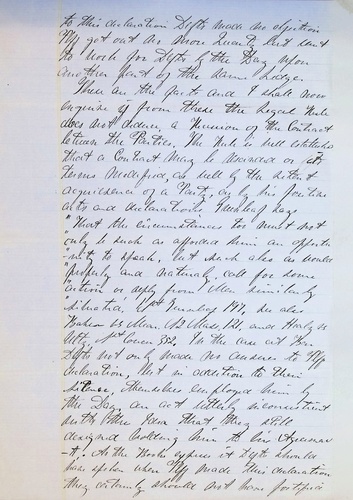 to this declaration Defts made no objection
Plff got out no more Quarry but went
to work for Defts by the Day upon
another part of the same Ledge.
These are the facts and I shall now
enquire if from these the legal rule
does not adduce, a recision of the Contract
between the Parties. The rule is well established
that a Contract may be rescinded or its
terms modified as well by the silent
acquiescence of a Party, as by his positive
acts and declarations, Greenleaf says
"That the circumstances too must not
only be such as afforded him an opportu-
"nity to speak, but such also as would
"properly and naturally call for some
"action or reply from Men similarly
"situated, 1 Greenleaf 197, See also
In the case at Bar
Defts not only made no answer to Plffs
declaration, but in addition to their
silence, themselves employed him by
the Day, an act utterly inconsistent
with the idea that they still
designed holding him to his Agreemen
-t, As the Books express it Defts should
have spoken when Plff made this declaration
they certainly should not have